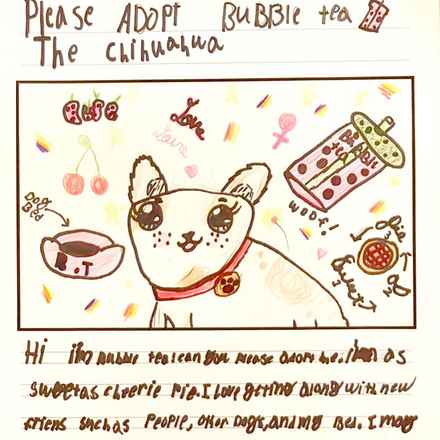 Please ADOPt BuBBle tea
The chihuahua
Love
Bubble
tea
Dog
Bed
B.T
woof!
Pie
Sweet
Hi im Bubble tea can you please adopt me. im as
sweet as cherrie Pie. I Love getting along with new
friens such as People, other Dogs, and my Bed. I may